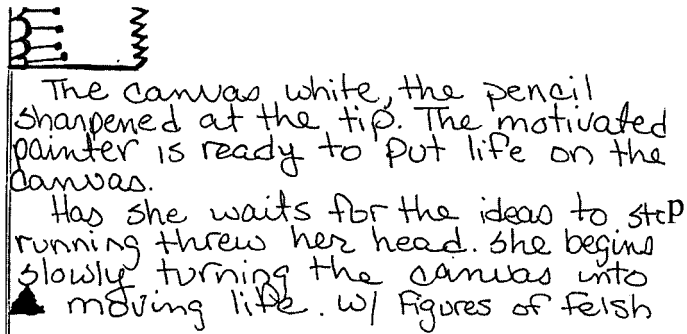 The canvas white, the pencil
sharpened at the tip. The motivated
painter is ready to put life on the
canvas.
Has she waits for the ideas to step
running threw her head. she begins
slowly turning the canvas into
moving life. w/ figures of felsh